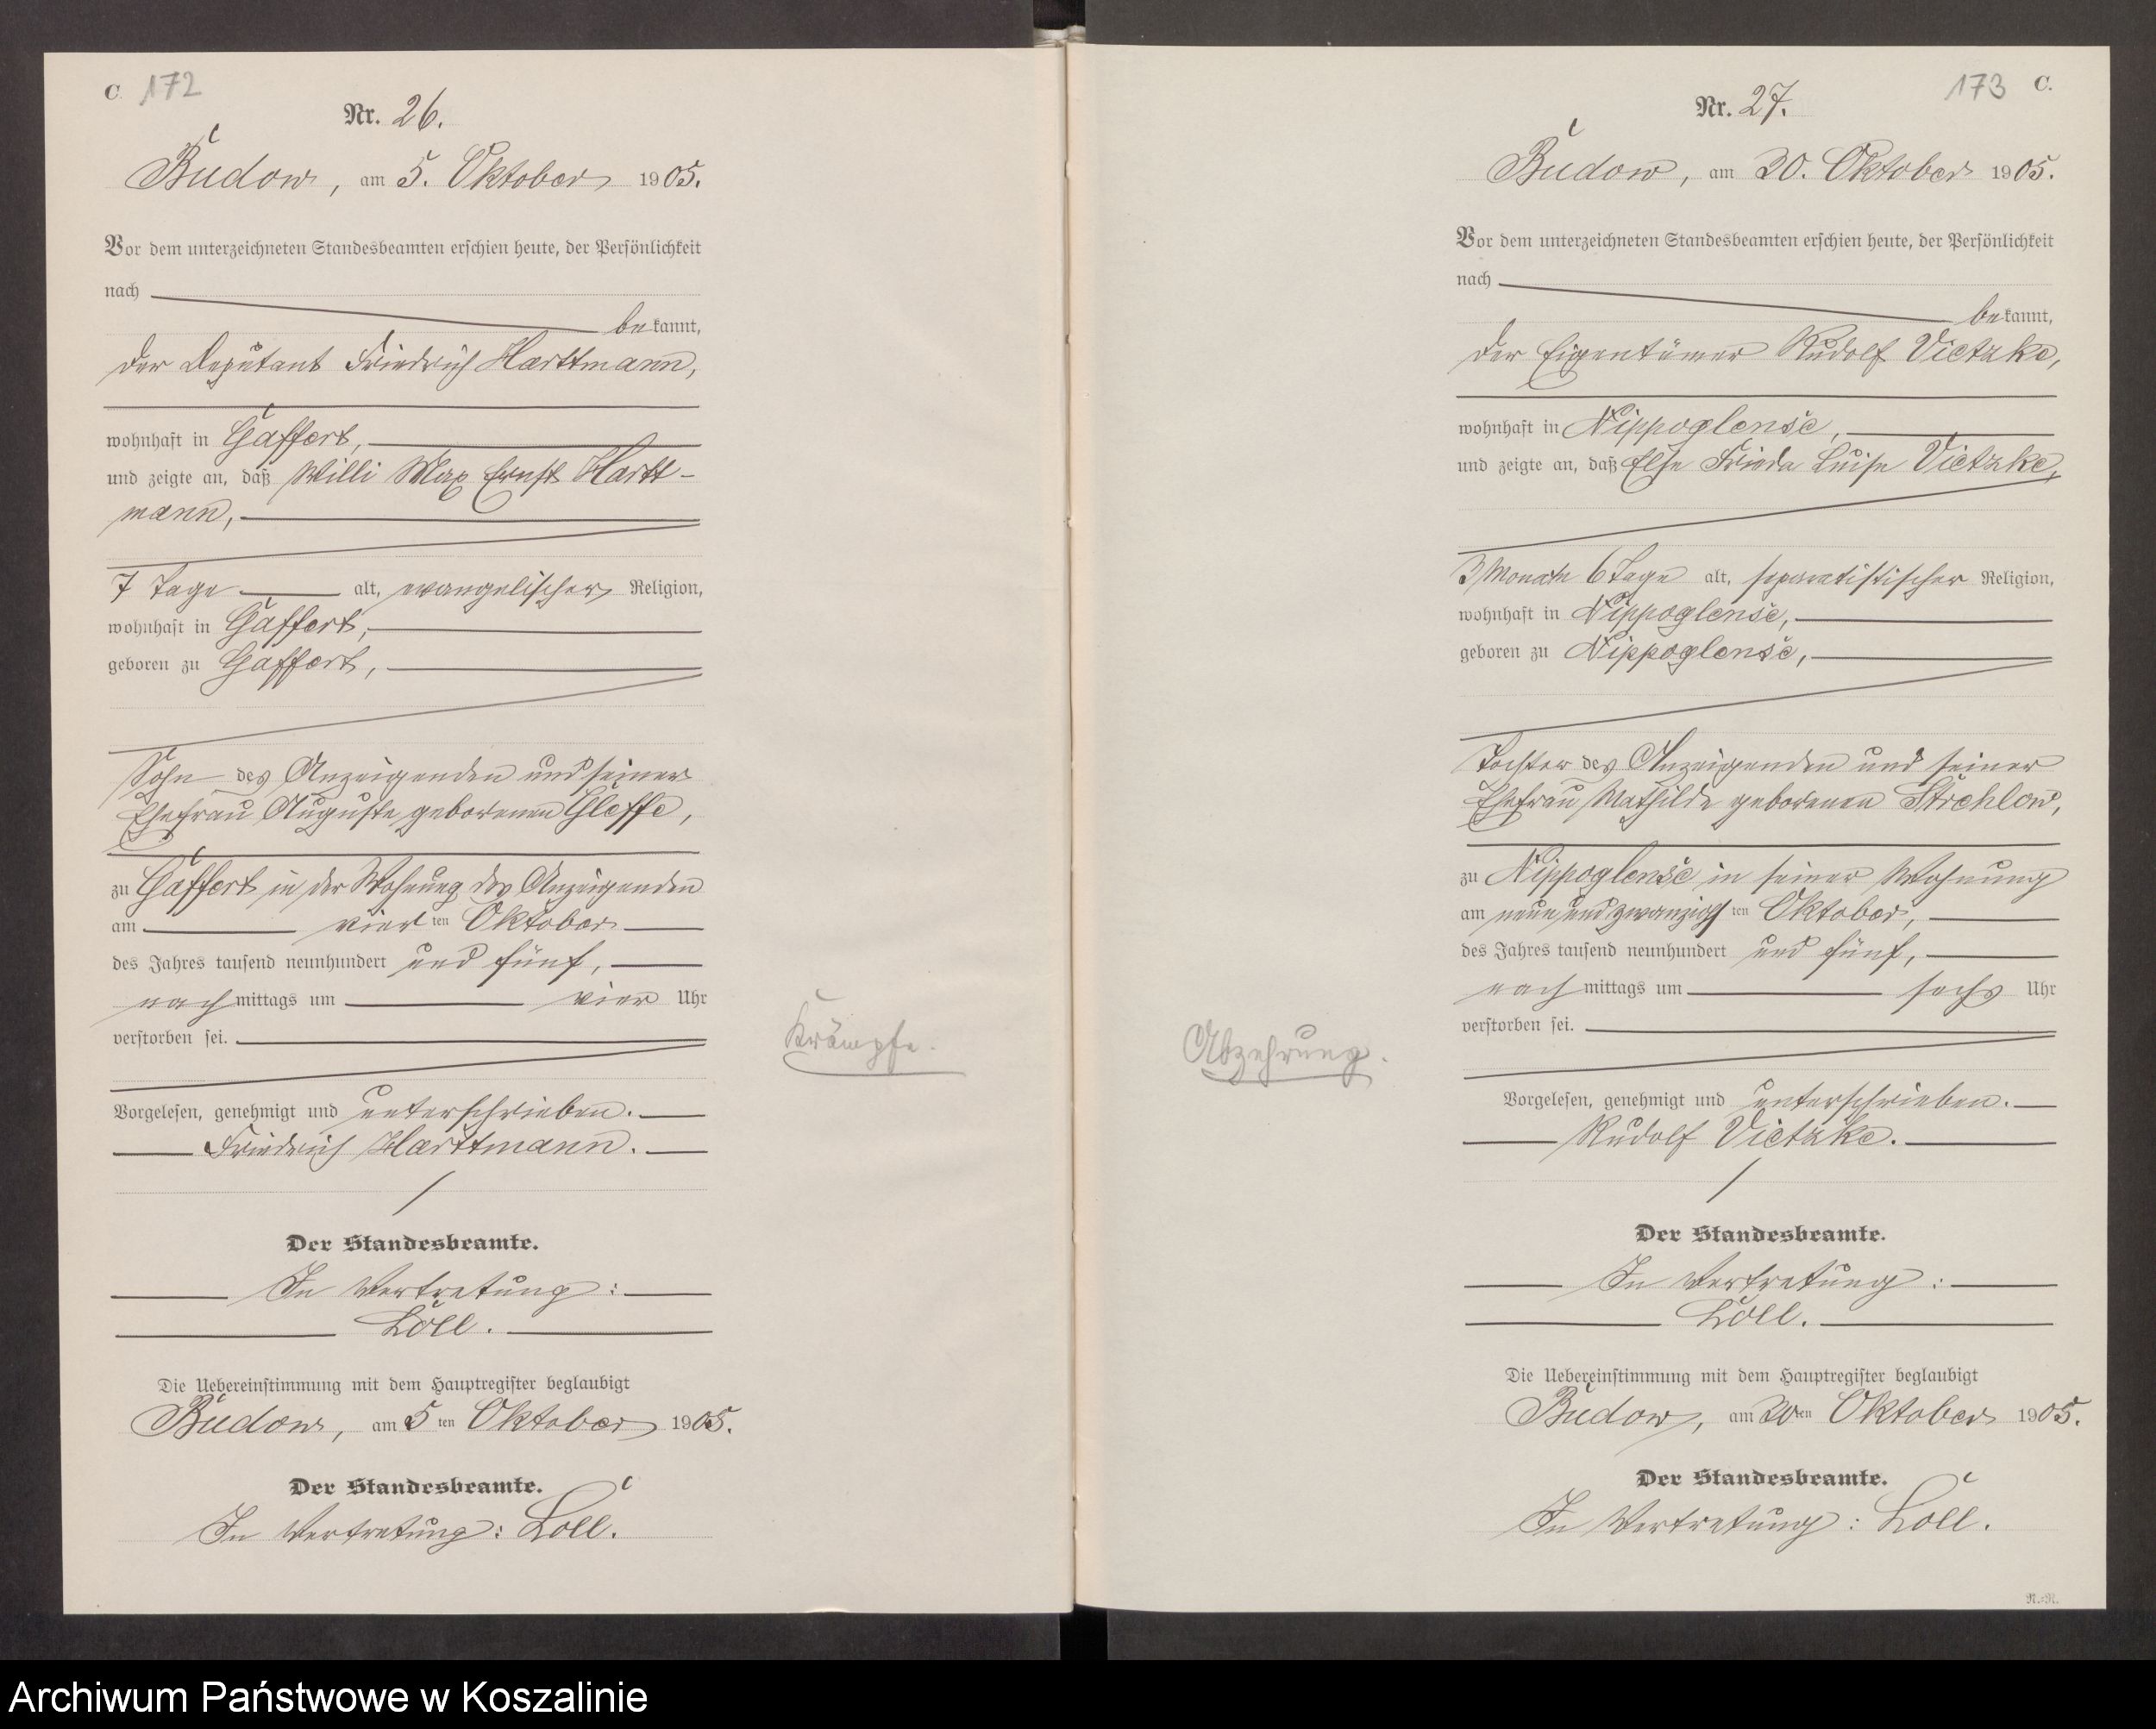 C. 172
Nr. 26.
Budow, am 5. Oktober 1905.
Vor dem unterzeichneten Standesbeamten erschien heute, der Persönlichkeit
nach
bekannt,
der Deputant Friedrich Harttmann,
wohnhaft in Gaffert,
und zeigte an, daß Willi Max Ernst Hartt-
mann,
7 Tage alt, evangelischer Religion,
wohnhaft in Gaffert,
geboren zu Gaffert,
Sohn des Anzeigenden und seiner
Ehefrau Auguste geborenen Gleffe,
zu Gaffert in der Wohnung des Anzeigenden
am vierten Oktober
des Jahres tausend neunhundert und fünf,
nachmittags um vier Uhr
verstorben sei.
Krämpfe.
Vorgelesen, genehmigt und unterschrieben.
Friedrich Harttmann.
Der Standesbeamte.
In Vertretung:
Loll.
Die Uebereinstimmung mit dem Hauptregister beglaubigt
Budow, am 5ten Oktober 1905.
Der Standesbeamte.
In Vertretung: Loll.
173 C.
Nr. 27.
Budow, am 30. Oktober 1905.
Vor dem unterzeichneten Standesbeamten erschien heute, der Persönlichkeit
nach
bekannt,
der Eigentümer Rudolf Vietzke,
wohnhaft in Nippoglense,
und zeigte an, daß Else Frieda Luise Vietzke,
3 Monate 6 Tage alt, separatistischer Religion,
wohnhaft in Nippoglense,
geboren zu Nippoglense,
Tochter des Anzeigenden und seiner
Ehefrau Mathilde geborenen Strehlow,
zu Nippoglense in seiner Wohnung
am neunundzwanzigsten Oktober,
des Jahres tausend neunhundert und fünf,
nachmittags um sechs Uhr
verstorben sei.
Abzehrung.
Vorgelesen, genehmigt und unterschrieben.
Rudolf Vietzke.
Der Standesbeamte.
In Vertretung:
Loll.
Die Uebereinstimmung mit dem Hauptregister beglaubigt
Budow, am 30ten Oktober 1905.
Der Standesbeamte.
In Vertretung: Loll.
R.-R.
Archiwum Państwowe w Koszalinie